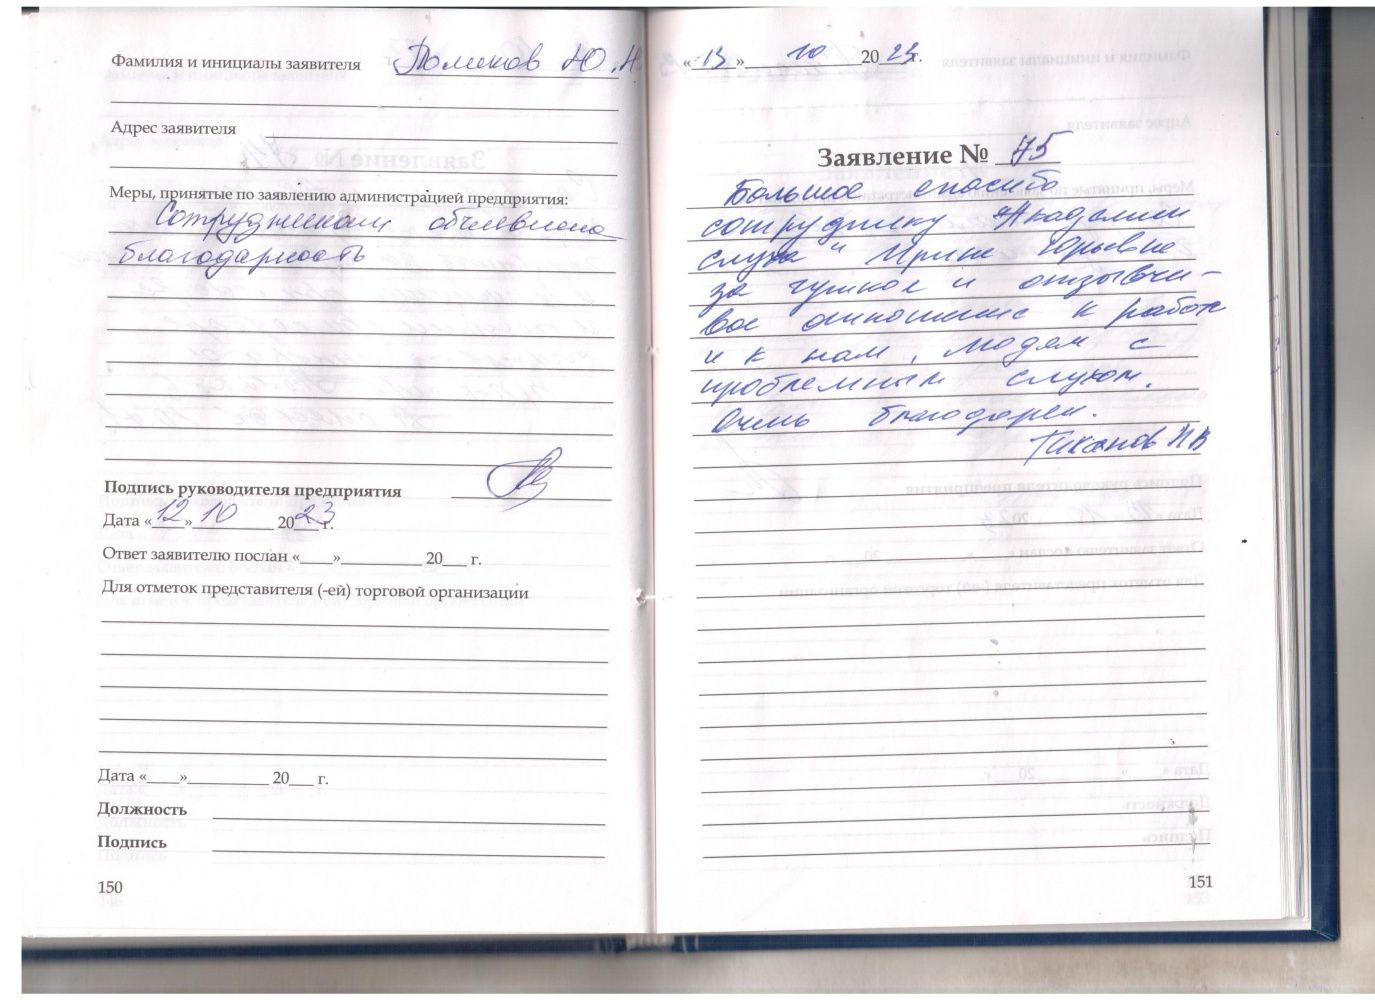 Фамилия и инициалы заявителя Поликов Ю.Н.
Адрес заявителя
Меры, принятые по заявлению администрацией предприятия:
Сотрудникам объявлена
благодарность
Подпись руководителя предприятия
Дата «12» 10 2023 г.
Ответ заявителю послан «____»__________ 20___ г.
Для отметок представителя (-ей) торговой организации
Дата «____»__________ 20___ г.
Должность
Подпись
150
«13» 10 2023 г.
Заявление № 75
Большое спасибо
сотруднику "Академии
слуха" Ирине Юрьевне
за чуткое и отзывчи-
вое отношение к работе
и к нам, людям с
проблемным слухом.
Очень благодарен.
Тиханов Н В
151